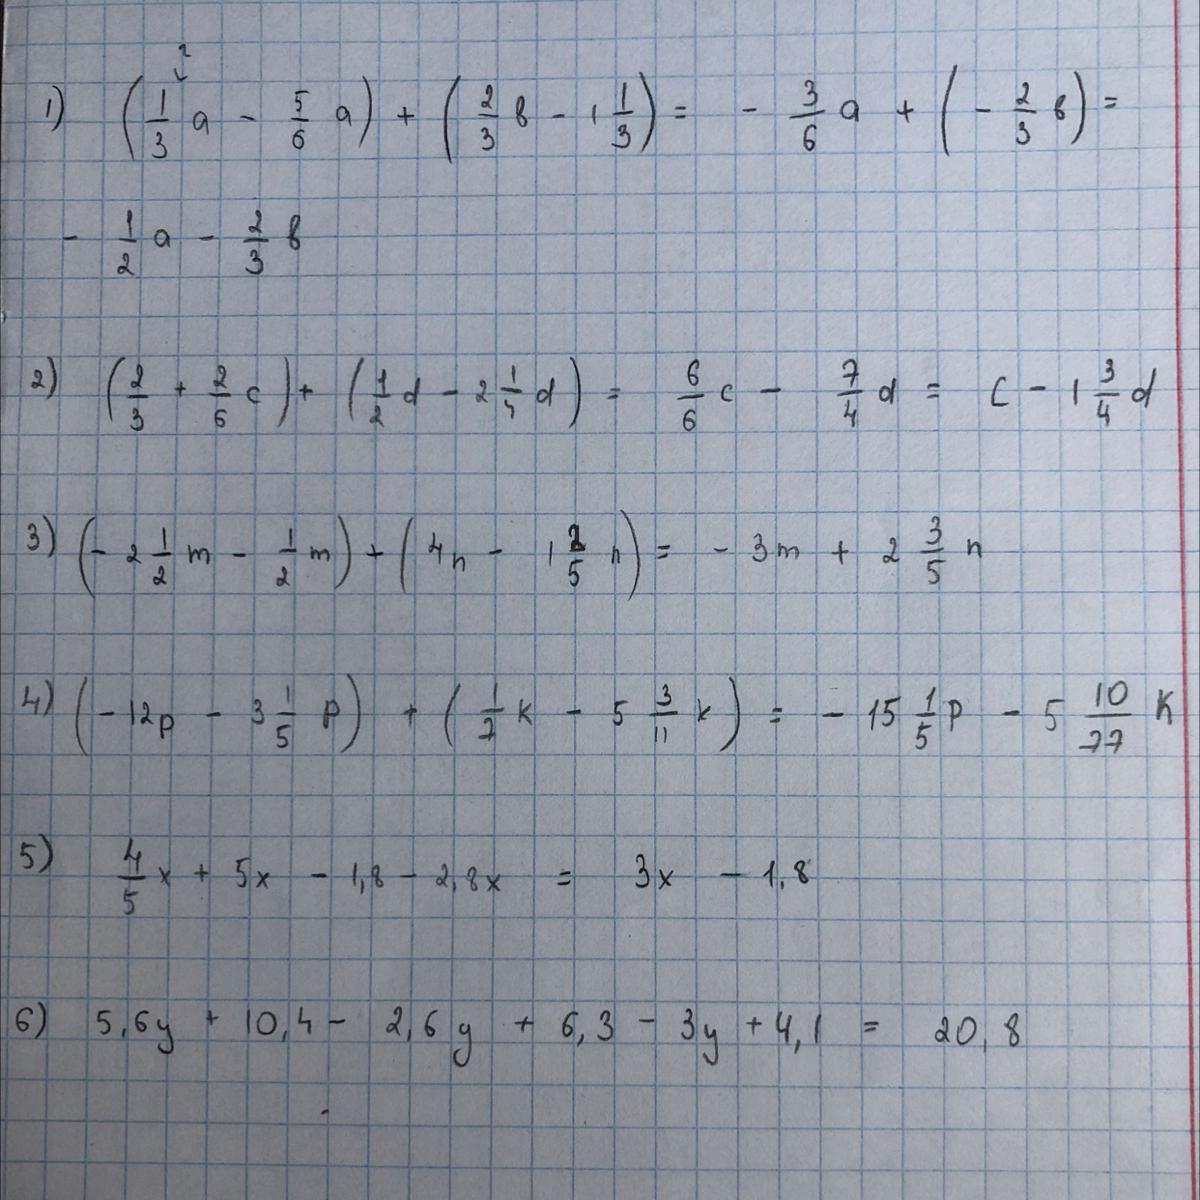 ?
1) (1/3 a - 5/6 a) + (2/3 в - 1 1/3) = - 3/6 a + (- 2/3 в) =
- 1/2 a - 2/3 в
2) (2/3 + 2/6 c) + (1/2 d - 2 1/4 d) = 6/6 c - 7/4 d = c - 1 3/4 d
3) (- 2 1/2 m - 1/2 m) + (4n - 1 2/5 n) = - 3m + 2 3/5 n
4) (- 12p - 3 1/5 p) + (1/7 k - 5 3/11 k) = - 15 1/5 p - 5 10/77 k
5) 4/5 x + 5x - 1,8 - 2,8x = 3x - 1,8
6) 5,6y + 10,4 - 2,6y + 6,3 - 3y + 4,1 = 20,8